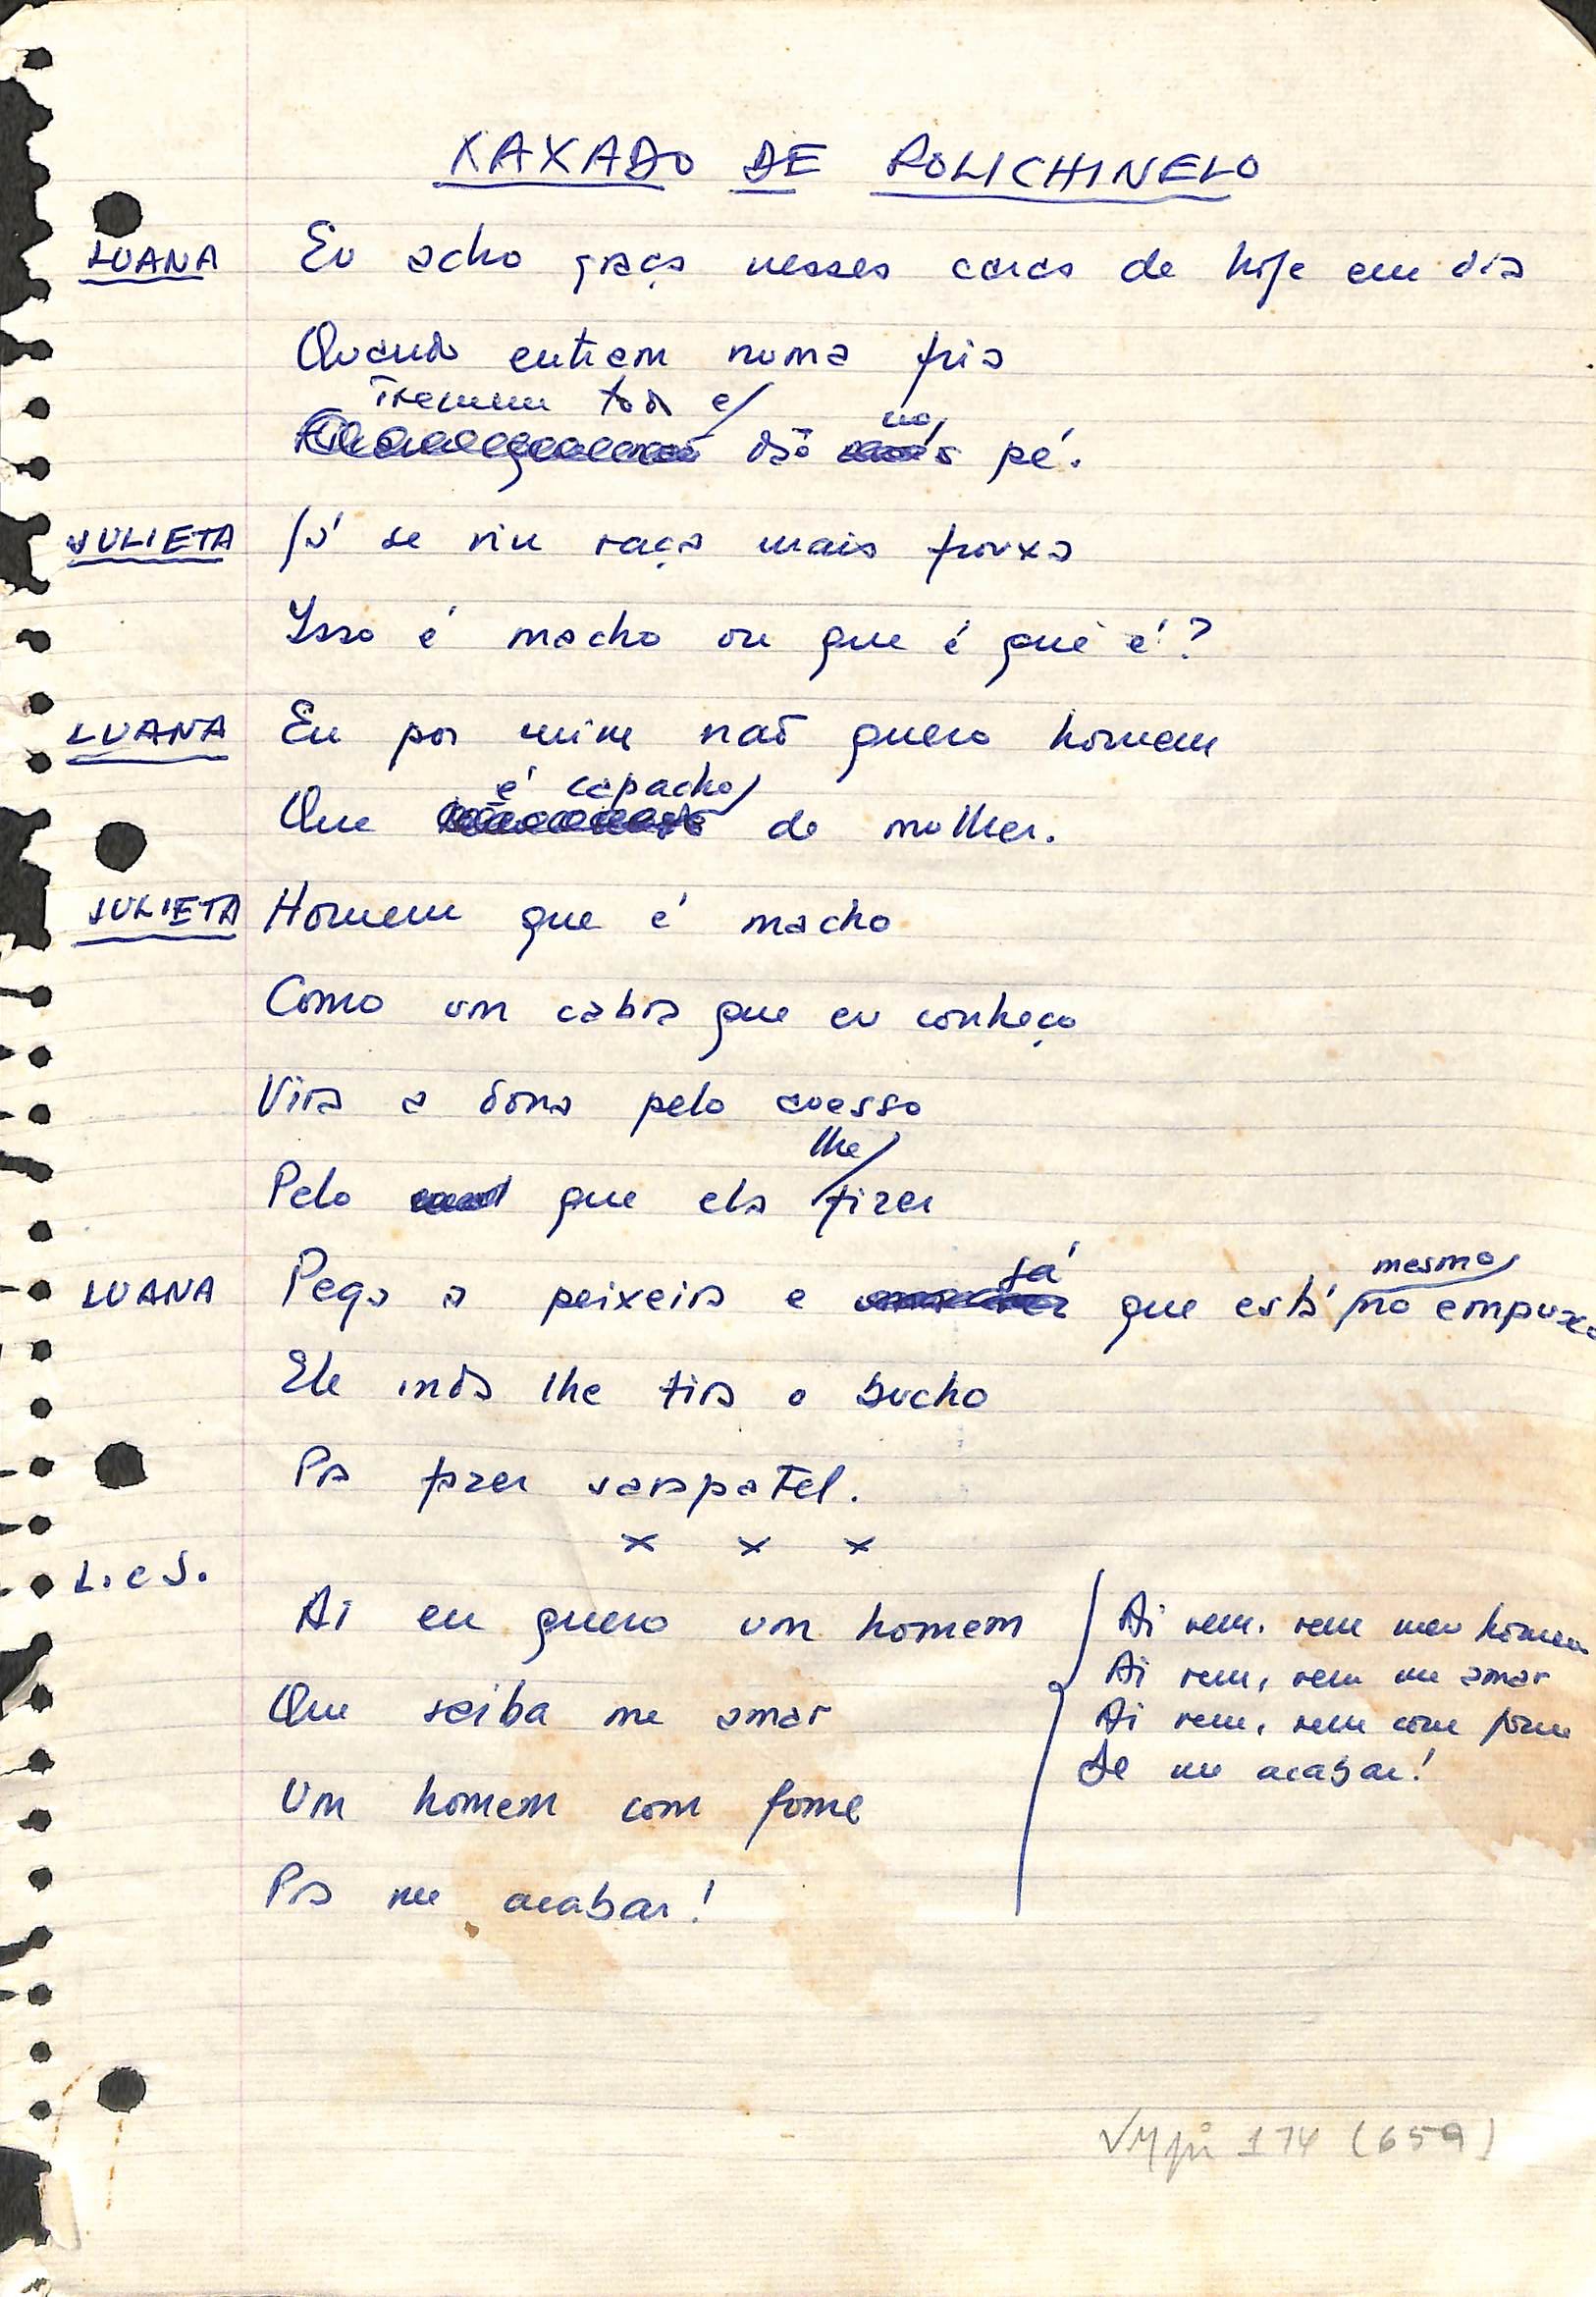 XAXADO DE POLICHINELO
LUANA Eu acho graça nesses caras de hoje em dia
Quando entram numa fria
Tremem todo e
dão no pé.
JULIETA Já se viu raça mais frouxa
Isso é macho ou que é que é?
LUANA Eu por mim não quero homem
é capacho
Que de mulher.
JULIETA Homem que é macho
Como um cabra que eu conheço
Vira a dona pelo avesso
lhe
Pelo que ela fizer
já mesmo
LUANA Pega a peixeira e que está no empuxo
Ele inda lhe tira o bucho
Pra fazer sarapatel.
x x x
L. e J.
Ai eu quero um homem
Que saiba me amar
Um homem com fome
Pra me acabar!
Ai vem, vem meu homem
Ai vem, vem me amar
Ai vem, vem com fome
De me acabar!
174 (659)